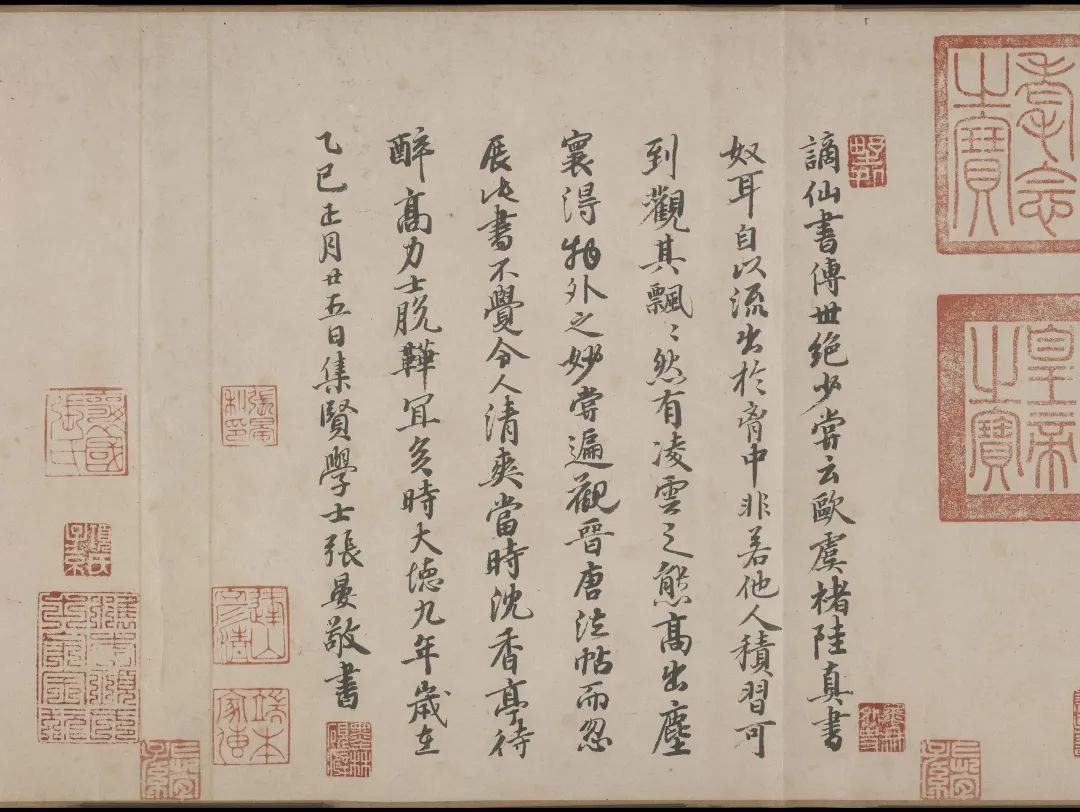 耄念
之寶
皇帝
之寶
謫仙書傳世絕少嘗云歐虞褚陸真書
奴耳自以流出於胷中非若他人積習可
到觀其飄〻然有凌雲之態高出塵
寰得物外之妙嘗遍觀晉唐法帖而忽
展此書不覺令人清爽當時沈香亭待
醉高力士脫鞾冝矣時大德九年歲在
乙巳正月廿五日集賢學士張晏敬書
張晏
私印
端本
家傳
襄國
張氏